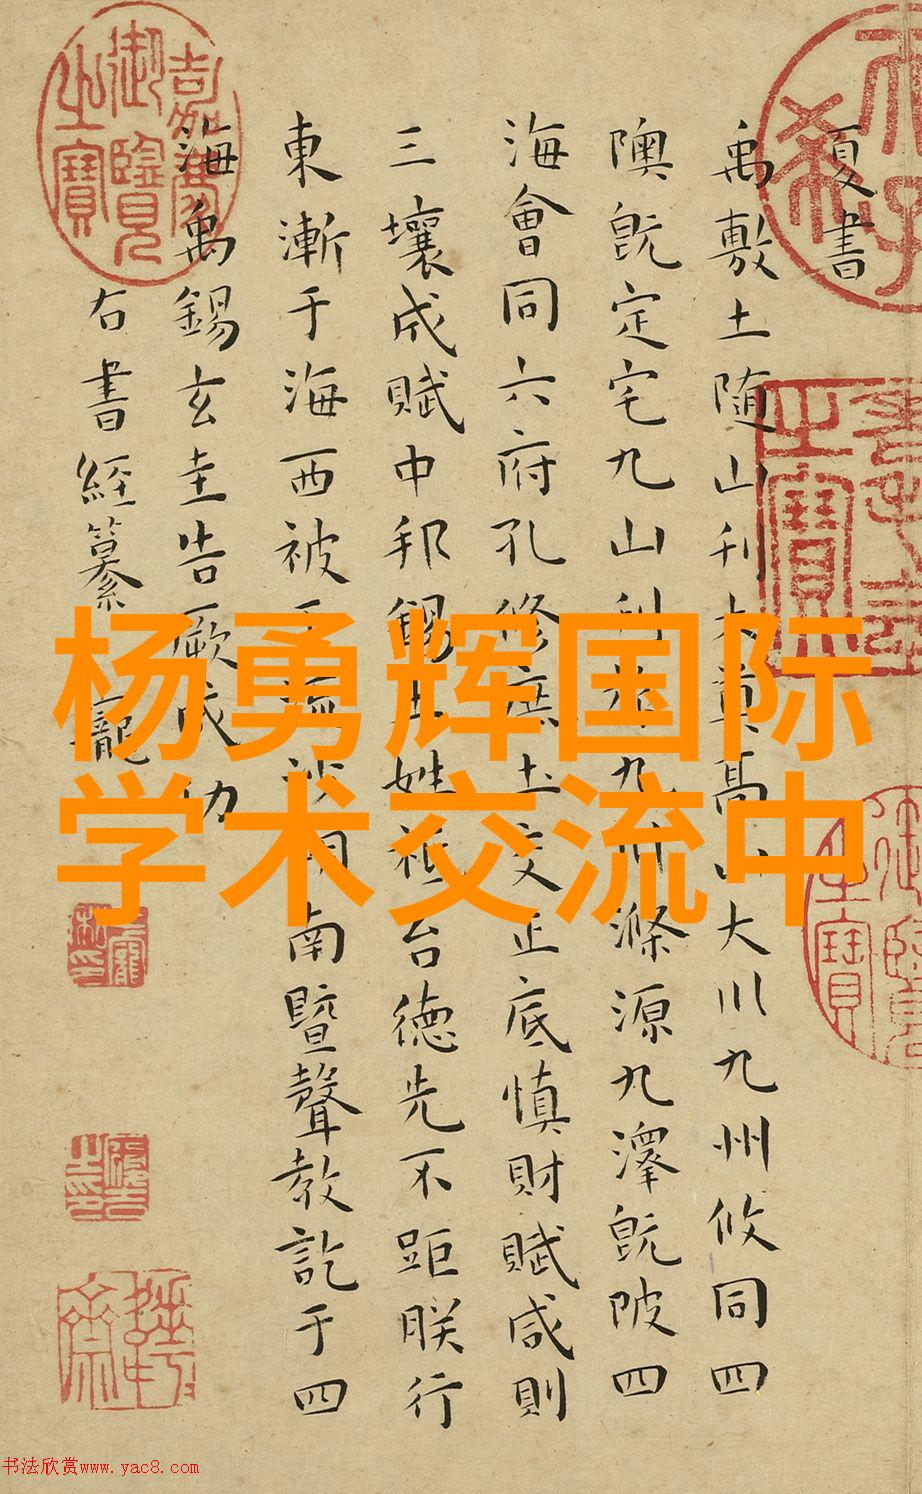 夏書
禹敷土随山刊木奠高山大川九州攸同四
隩既定宅九山刊旅九川滌源九澤既陂四
海會同六府孔修庶土交正底慎財賦咸則
三壤成賦中邦錫土姓祗台徳先不距朕行
東漸于海西被于流沙朔南暨聲教訖于四
海禹錫玄圭告厥成功
右書經纂 寵
杨勇辉国际
学术交流中
嘉慶御覽之寶
书法欣赏www.yac8.com